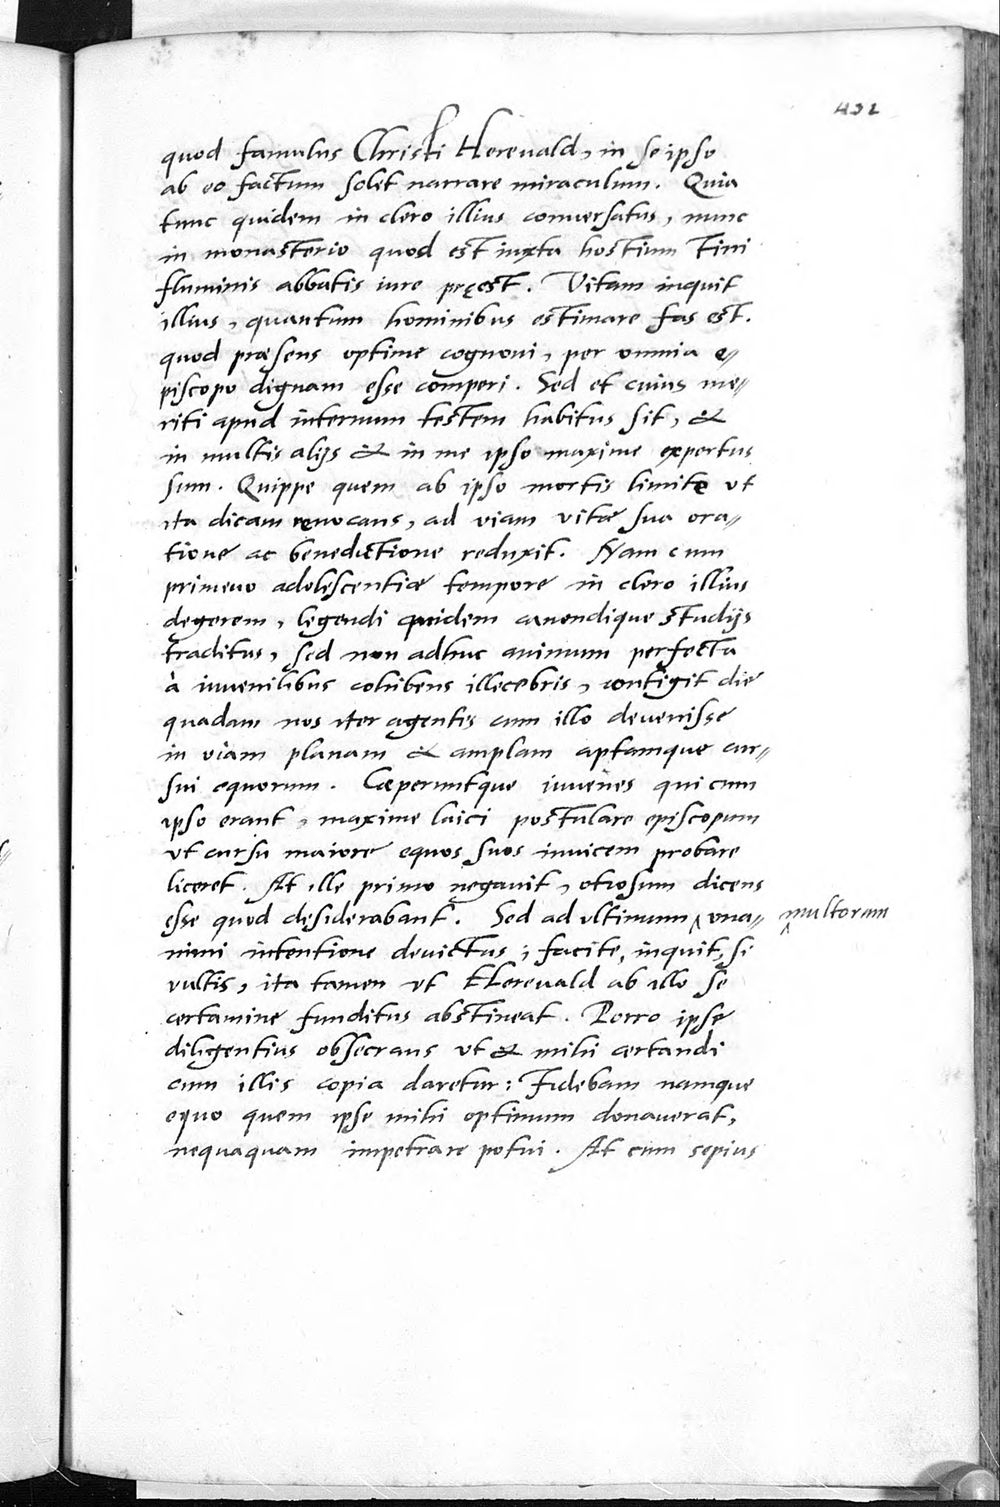 432
quod famulus Christi Hereuald, in se ipso
ab eo factum solet narrare miraculum. Quia
tunc quidem in clero illius conuersatus, nunc
in monasterio quod est iuxta hostium Tini
fluminis abbatis iure pręest. Vitam inquit
illius, quantum hominibus estimare fas est.
quod præsens optime cognoui, per omnia e//
piscopo dignam esse comperi. Sed et cuius me//
riti apud internum testem habitus sit, &
in multis alijs & in me ipso maxime expertus
sum. Quippe quem ab ipso mortis limite vt
ita dicam reuocans, ad viam vitæ sua ora//
tione ac benedictione reduxit. Nam cum
primeuo adolescentiæ tempore in clero illius
degerem, legendi quidem canendique studijs
traditus, sed non adhuc animum perfecta
à iuuenilibus cohibens illecebris, contigit die
quadam nos iter agentes cum illo deuenisse
in viam planam & amplam aptamque cur//
sui equorum. Cæperuntque iuuenes qui cum
ipso erant, maxime laici postulare episcopum
vt cursu maiore equos suos inuicem probare
liceret. At ille primo negauit, otiosum dicens
esse quod desiderabant. Sed ad vltimum ‸ vna// ‸ multorum
nimi intentione deuictus; facite, inquit, si
vultis, ita tamen vt Hereuald ab illo se
certamine funditus abstineat. Porro ipse
diligentius obsecrans vt & mihi certandi
cum illis copia daretur: Fidebam namque
equo quem ipse mihi optimum donauerat,
nequaquam impetrare potui. At cum sepius